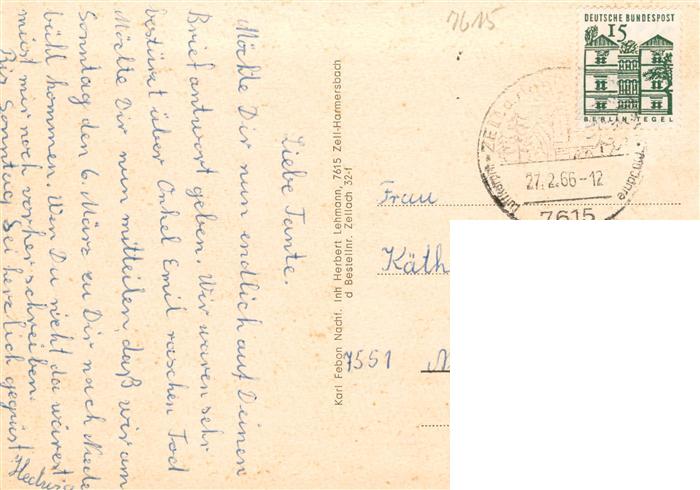 Liebe Tante.
Möchte Dir nun endlich auf Deinen
Brief antwort geben. Wir waren sehr
bestürzt über Onkel Emil raschen Tod
Möchte Dir nun mitteilen daß wir am
Sonntag den 6. März zu Dir nach Niede
bühl kommen. Wen Du nicht da wärest
müst mir noch vorher schreiben.
Bis Sonntag Sei herzlich gegüst
Hedwig
Karl Febon Nachf. Inh Herbert Lehmann, 7615 Zell-Harmersbach
d Bestellnr. Zellach 32-f
7615
DEUTSCHE BUNDESPOST
15
BERLIN TEGEL
ZELL a.
27.2.66-12
7615
Luftkurort
Frau
Käth
7551